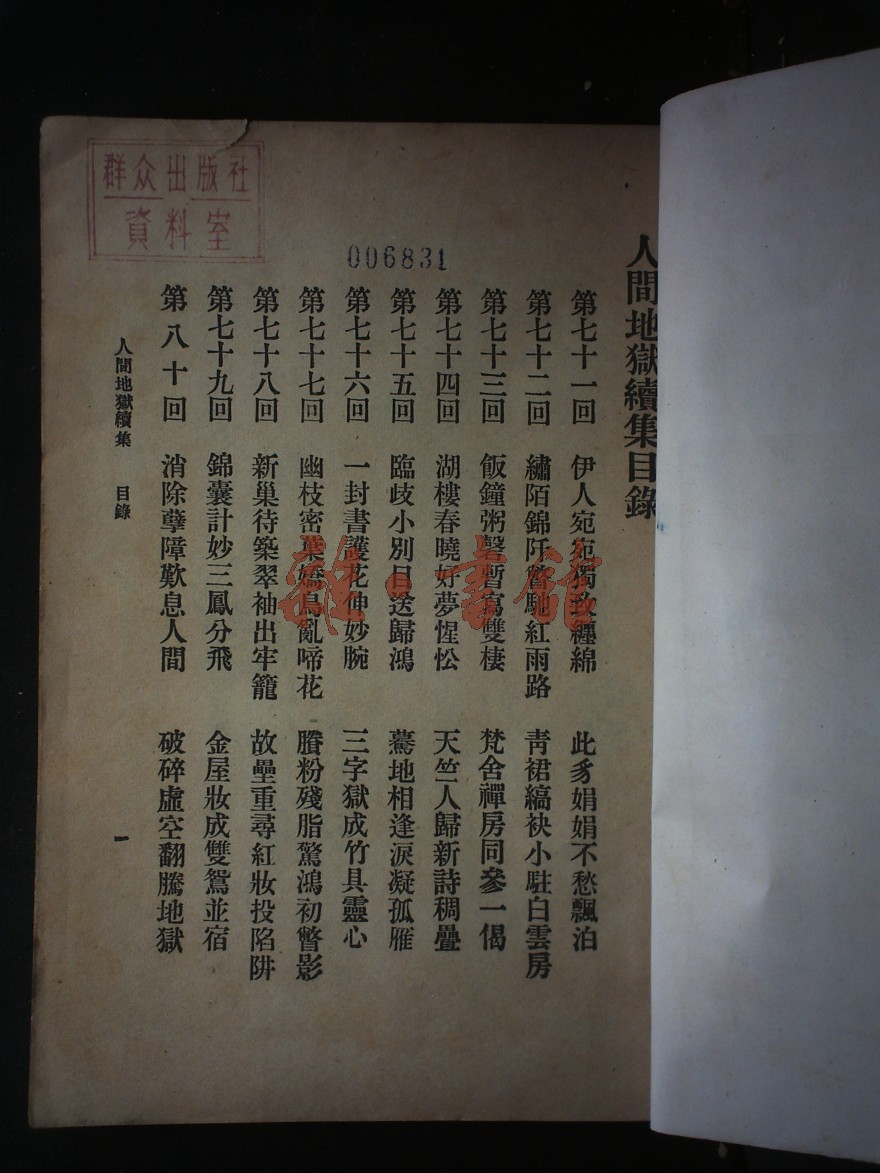 群众出版社
資料室
006831
人間地獄續集目錄
第七十一回 伊人宛宛獨致纏綿 此豸娟娟不愁飄泊
第七十二回 繡陌錦阡瞥馳紅雨路 青裙縞袂小駐白雲房
第七十三回 飯鐘粥磬暫寓雙棲 梵舍禪房同參一偈
第七十四回 湖樓春曉好夢惺忪 天竺人歸新詩稠疊
第七十五回 臨歧小別目送歸鴻 驀地相逢淚凝孤雁
第七十六回 一封書護花伸妙腕 三字獄成竹具靈心
第七十七回 幽枝密葉嬌鳥亂啼花 賸粉殘脂驚鴻初瞥影
第七十八回 新巢待築翠袖出牢籠 故壘重尋紅妝投陷阱
第七十九回 錦囊計妙三鳳分飛 金屋妝成雙鴛並宿
第八十回 消除孽障歎息人間 破碎虛空翻騰地獄
人間地獄續集 目錄 一
雜·書館